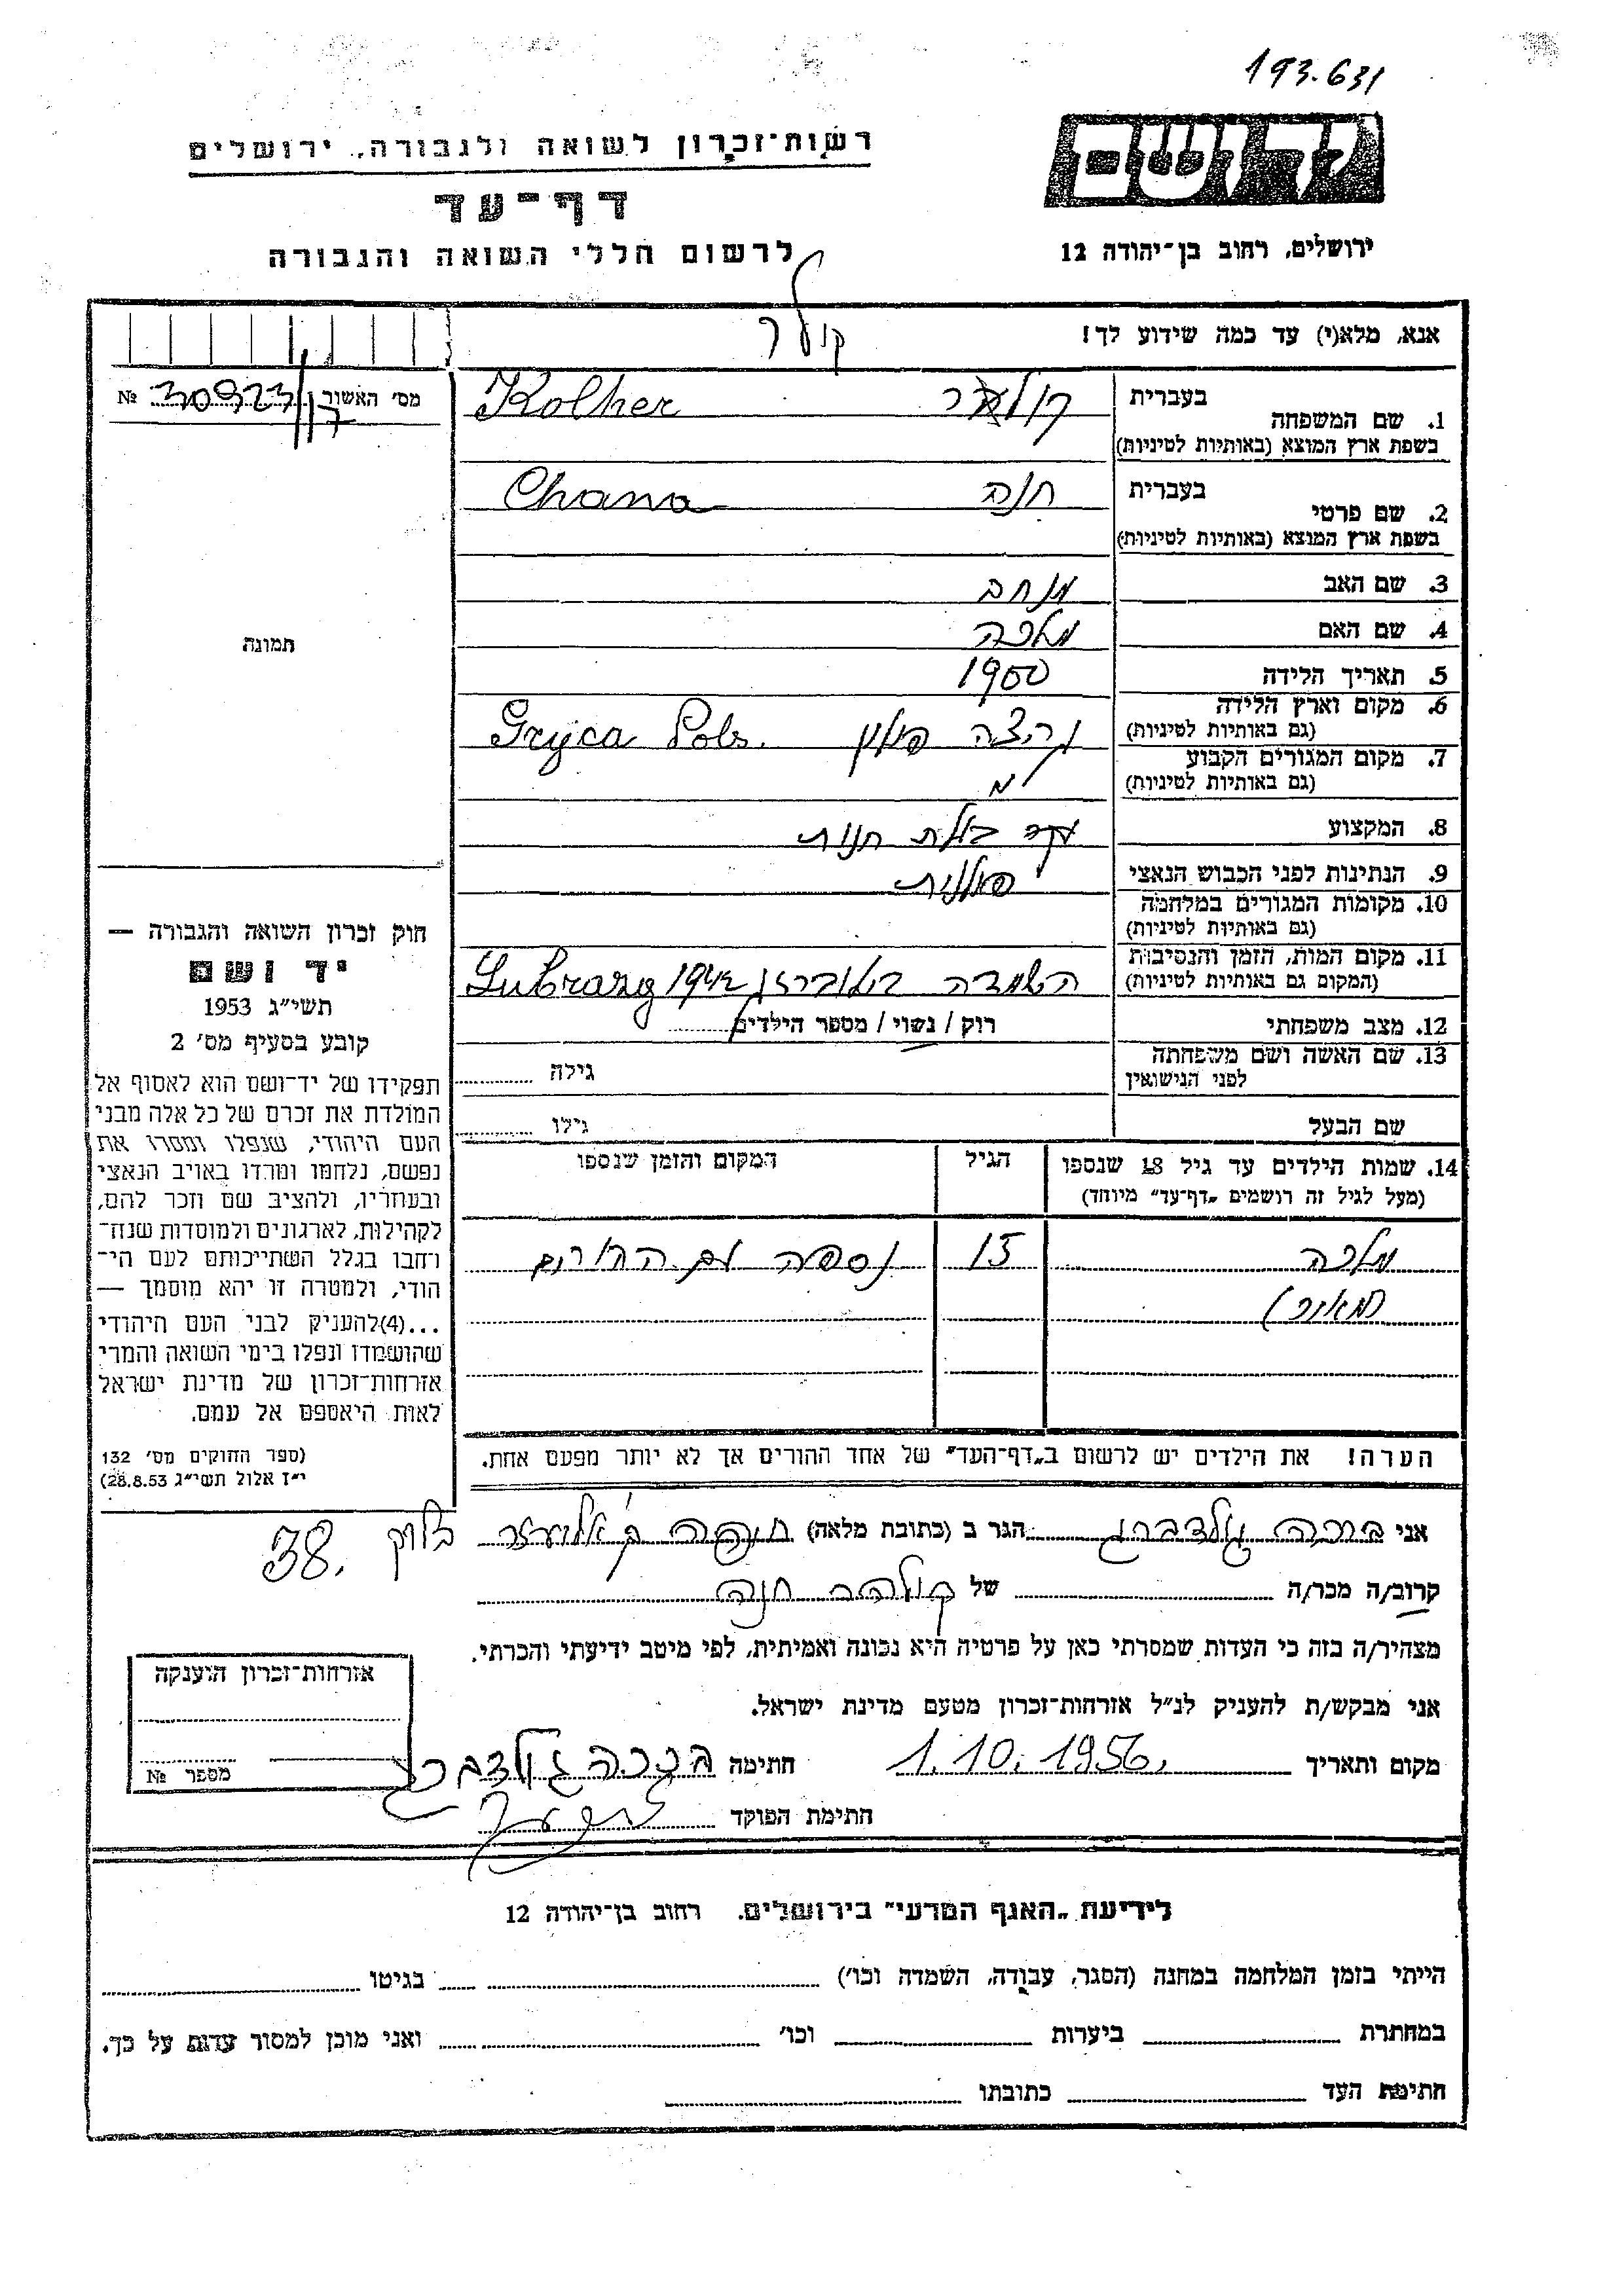 193.631
רשות־זכרון לשואה ולגבורה, ירושלים
ידושם
דף־עד
לרשום חללי השואה והגבורה
ירושלים, רחוב בן־יהודה 12
אנא, מלא(י) עד כמה שידוע לך!
קולר
מס׳ האשור 30923 №
בעברית
1. שם המשפחה
בשפת ארץ המוצא (באותיות לטיניות)
Kolher
בעברית חנה
2. שם פרטי
בשפת ארץ המוצא (באותיות לטיניות)
Chana
3. שם האב מנחם
4. שם האם מלכה
5. תאריך הלידה 1900
6. מקום וארץ הלידה
(גם באותיות לטיניות)
פולין
7. מקום המגורים הקבוע
(גם באותיות לטיניות)
8. המקצוע בעלת חנות
9. הנתינות לפני הכבוש הנאצי פולנית
10. מקומות המגורים במלחמה
(גם באותיות לטיניות)
11. מקום המות, הזמן והנסיבות
(המקום גם באותיות לטיניות)
השמדה 1942 Lubrazg
12. מצב משפחתי רוק / נשוי / מספר הילדים
13. שם האשה ושם משפחתה
לפני הנישואין
גילה
שם הבעל גילו
14. שמות הילדים עד גיל 18 שנספו הגיל המקום והזמן שנספו
(מעל לגיל זה רושמים „דף־עד” מיוחד)
מלכה 15 נספה עם ההורים
הערה! את הילדים יש לרשום ב„דף־העד” של אחד ההורים אך לא יותר מפעם אחת.
תמונה
חוק זכרון השואה והגבורה —
יד ושם
תשי״ג 1953
קובע בסעיף מס׳ 2
תפקידו של יד־ושם הוא לאסוף אל
המולדת את זכרם של כל אלה מבני
העם היהודי, שנפלו ומסרו את
נפשם, נלחמו ומרדו באויב הנאצי
ובעוזריו, ולהציב שם וזכר להם,
לקהילות, לארגונים ולמוסדות שנח־
רחבו בגלל השתייכותם לעם הי־
הודי, ולמטרה זו יהא מוסמך —
...(4)להעניק לבני העם היהודי
שהושמדו ונפלו בימי השואה והמרי
אזרחות־זכרון של מדינת ישראל
לאות היאספם אל עמם.
(ספר החוקים מס׳ 132
י״ז אלול תשי״ג 28.8.53)
אני ברכה גולדברג הגר ב (כתובת מלאה) חיפה ק׳ אליעזר בלוק 38.
קרוב/ה מכר/ה של קולהר חנה
מצהיר/ה בזה כי העדות שמסרתי כאן על פרטיה היא נכונה ואמיתית, לפי מיטב ידיעתי והכרתי.
אני מבקש/ת להעניק לנ״ל אזרחות־זכרון מטעם מדינת ישראל.
מקום ותאריך 1.10.1956. חתימה ברכה גולדברג
חתימת הפוקד
אזרחות־זכרון הוענקה
מספר №
לידיעת „האגף המדעי” בירושלים. רחוב בן־יהודה 12
הייתי בזמן המלחמה במחנה (הסגר, עבודה, השמדה וכו׳) בגיטו
במחתרת ביערות וכו׳ ואני מוכן למסור עדות על כך.
חתימת העד כתובתו